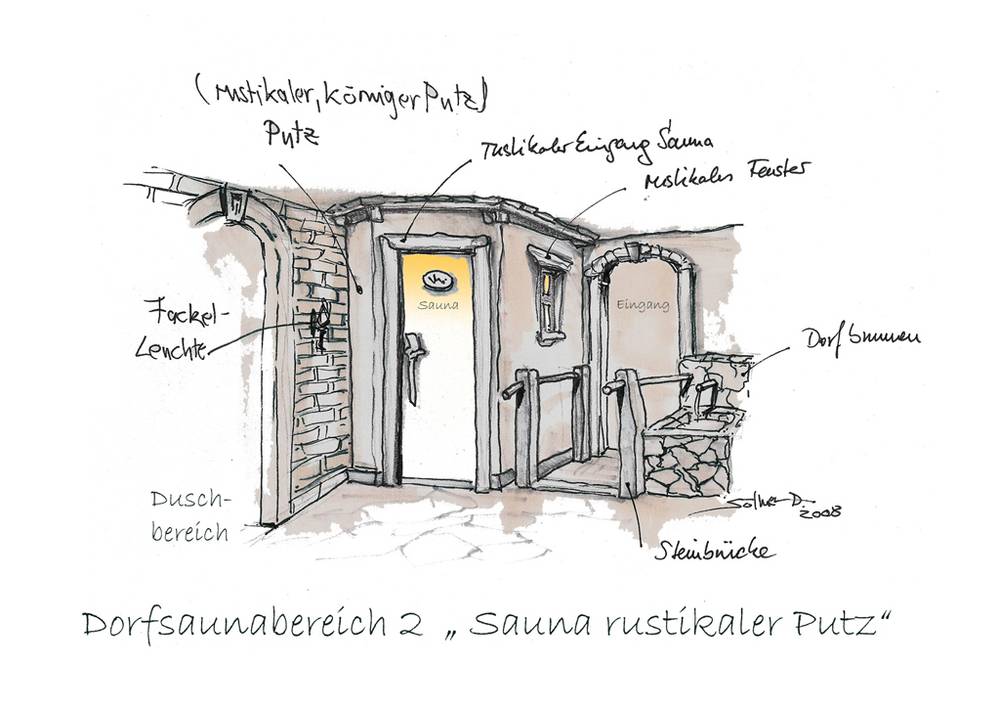 (rustikaler, körniger Putz)
Putz
rustikaler Eingang Sauna
rustikales Fenster
Sauna
Eingang
Fackel-
Leuchte
Dorfbrunnen
Dusch-
bereich
2008
Steinbrücke
Dorfsaunabereich 2 „Sauna rustikaler Putz“